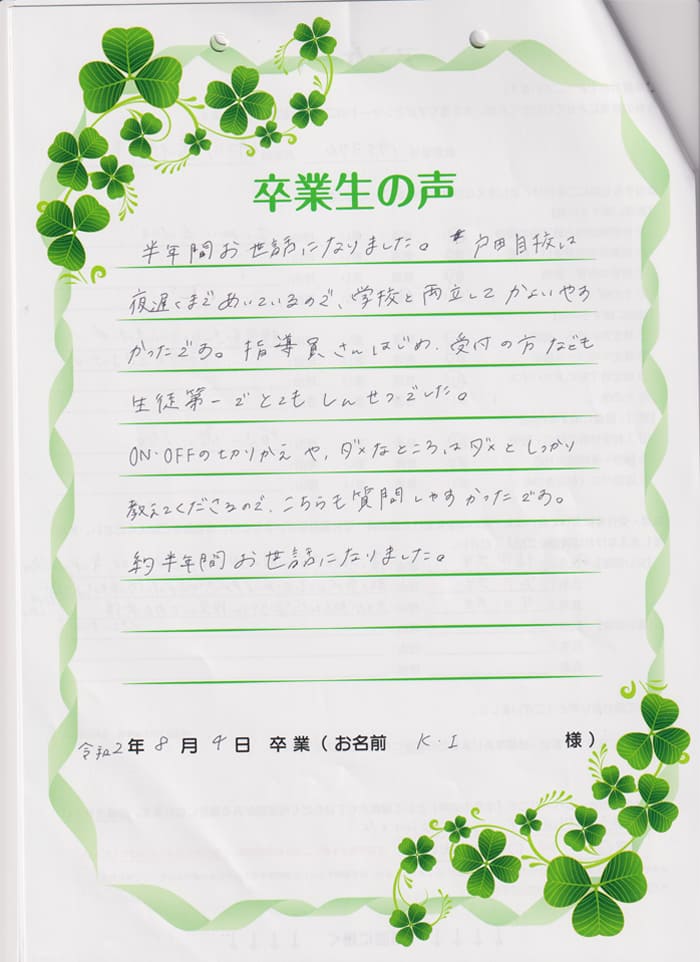 卒業生の声
半年間お世話になりました。 戸田自校は
夜遅くまであいているので、学校と両立してかよいやす
かったです。指導員さんはじめ、受付の方なども
生徒第一でとてもしんせつでした。
ON・OFFの切りかえや、ダメなところはダメとしっかり
教えてくださるので、こちらも質問しやすかったです。
約半年間お世話になりました。
令和2年 8月 4日 卒業(お名前 K・I 様)